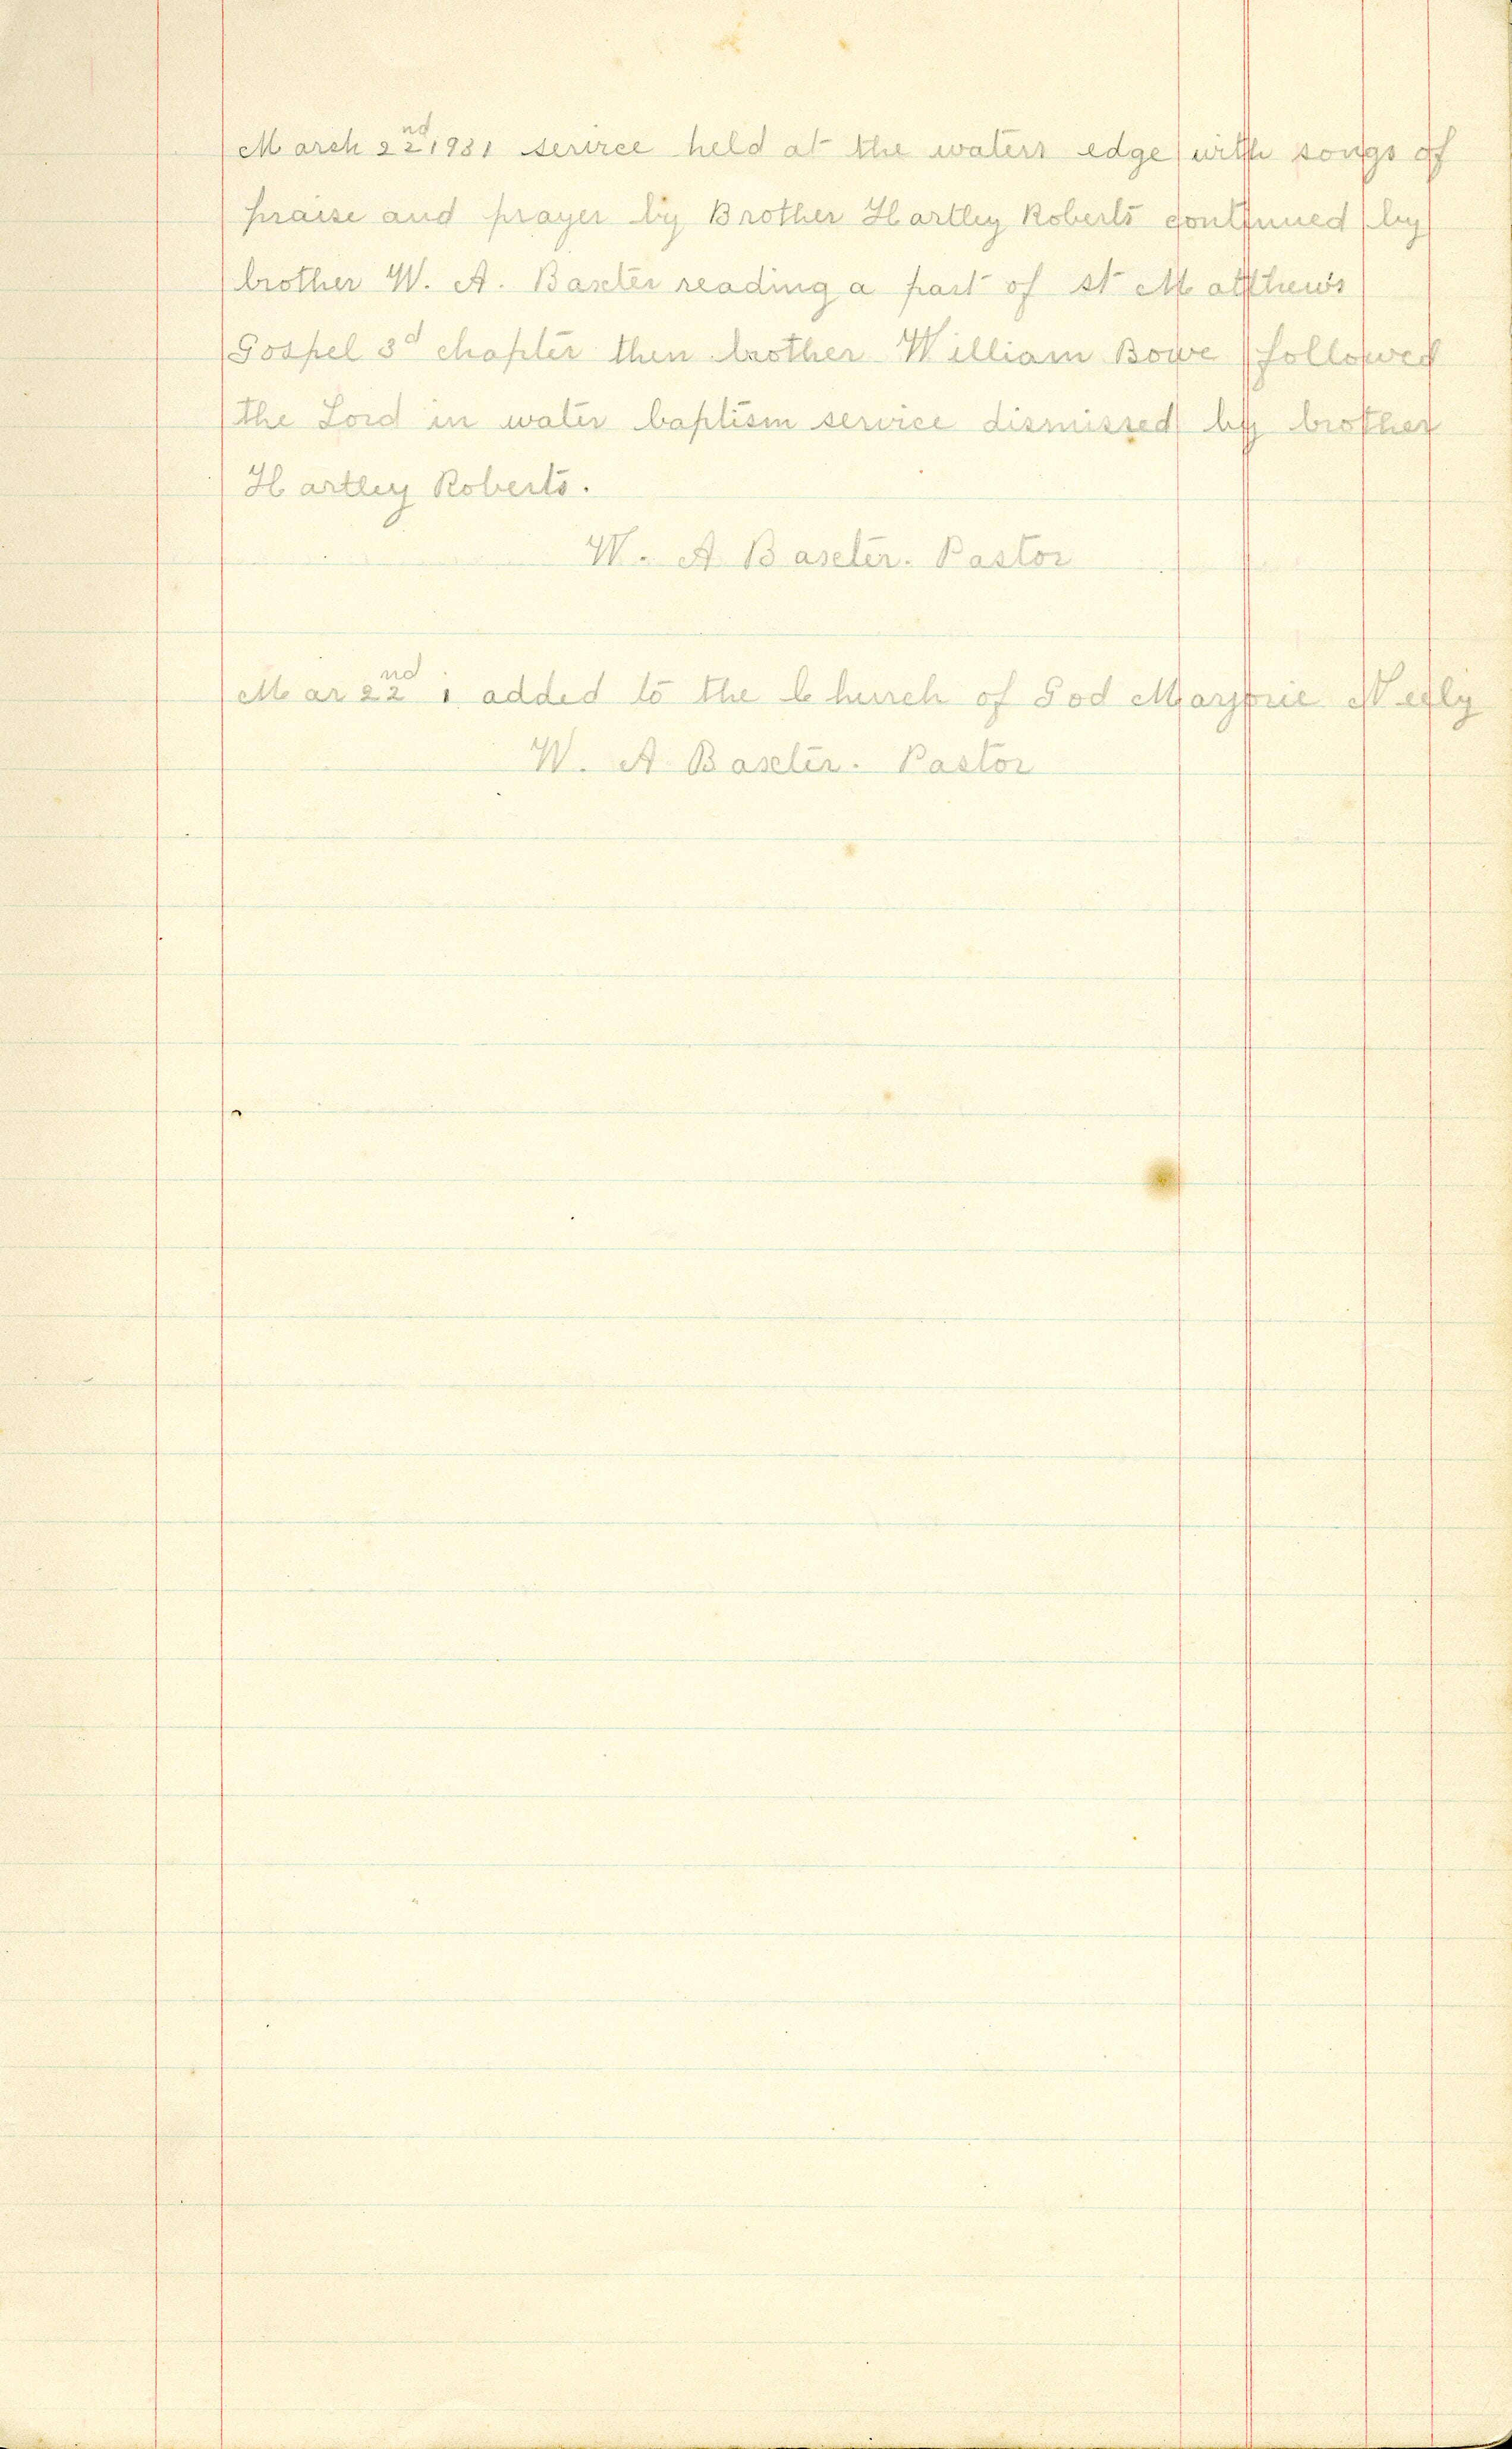 March 22nd 1931 service held at the waters edge with songs of
praise and prayer by Brother Hartley Roberts continued by
brother W. A. Baxter reading a part of st Matthew's
Gospel 3d chapter then brother William Bowe followed
the Lord in water baptism service dismissed by brother
Hartley Roberts.
W. A Baxter. Pastor
Mar 22nd 1 added to the Church of God Marjorie Neely
W. A Baxter. Pastor